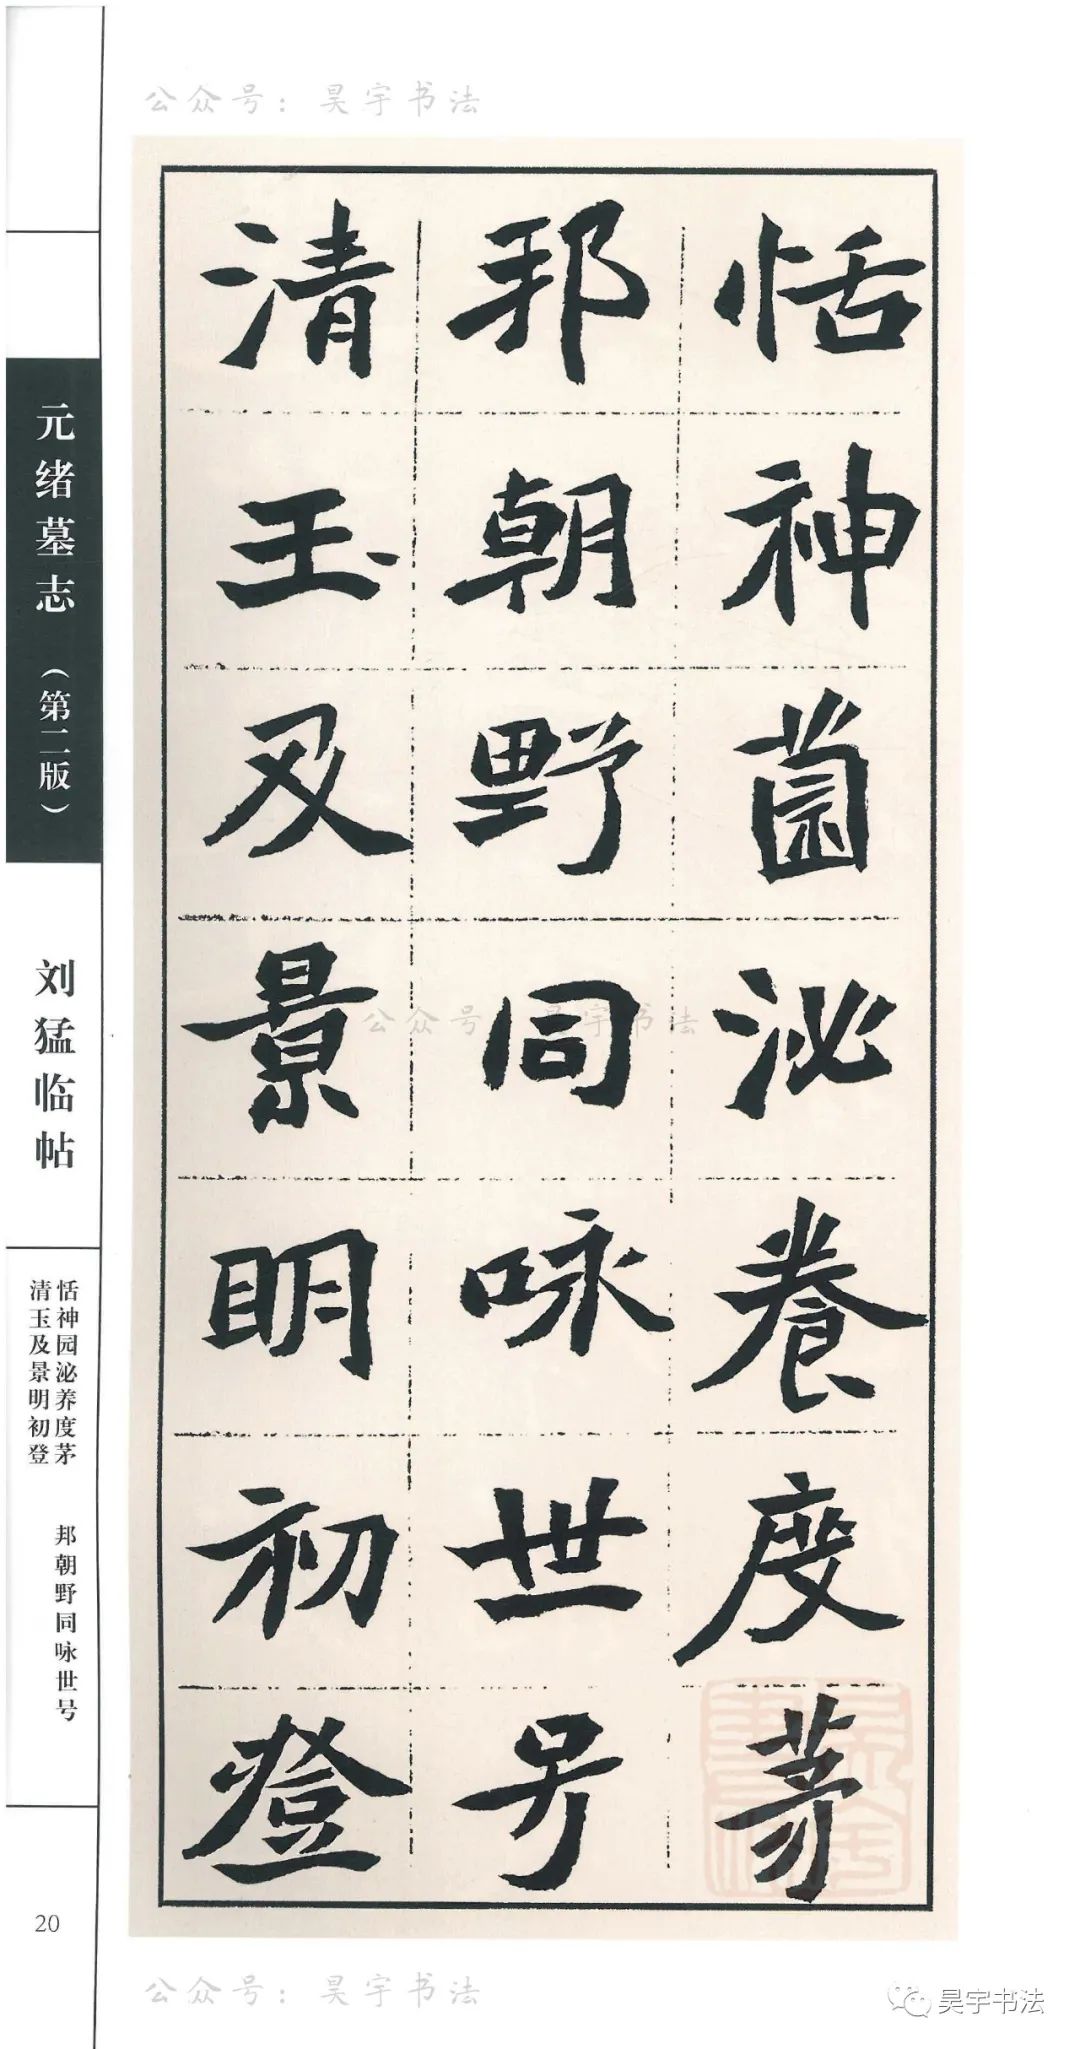 公众号：昊宇书法
恬神茵泌养度茅
邦朝野同咏世号
清玉及景明初登
公众号 昊宇书法
元绪墓志（第二版）
刘猛临帖
恬神园泌养度茅
清玉及景明初登
邦朝野同咏世号
20
公众号：昊宇书法
昊宇书法